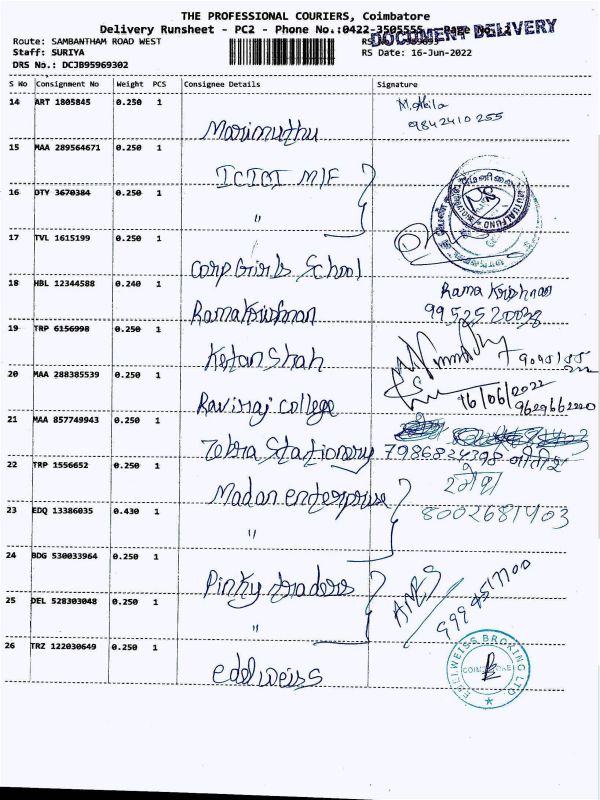 THE PROFESSIONAL COURIERS, Coimbatore
Delivery Runsheet - PC2 - Phone No.:0422-3505555 Page No.
DOCUMENT DELIVERY
Route: SAMBANTHAM ROAD WEST
Staff: SURIYA
RS Date: 16-Jun-2022
DRS No.: DCJB95969302
S No Consignment No Weight PCS Consignee Details Signature
14 ART 1805845 0.250 1 Marimuthu M. Akila 9842410255
15 MAA 289564671 0.250 1 ICICI M/F
16 DTY 3670384 0.250 1 "
MUTUAL FUND
17 TVL 1615199 0.250 1 Corp Girls School
18 HBL 12344588 0.240 1 Rama Krishnan Rama Krishnan 9952520038
19 TRP 6156998 0.250 1 Ketan Shah
20 MAA 288385539 0.250 1 Raviraj College 16/06/2022
21 MAA 857749943 0.250 1 Zebra Stationery 7986834398
22 TRP 1556652 0.250 1 Madan enterprise
23 EDQ 13386035 0.430 1 " 8002681403
24 BDG 530033964 0.250 1 Pinky traders
25 DEL 528303048 0.250 1 "
26 TRZ 122030649 0.250 1 edelweiss
EDELWEISS BROKING LTD
COIMBATORE